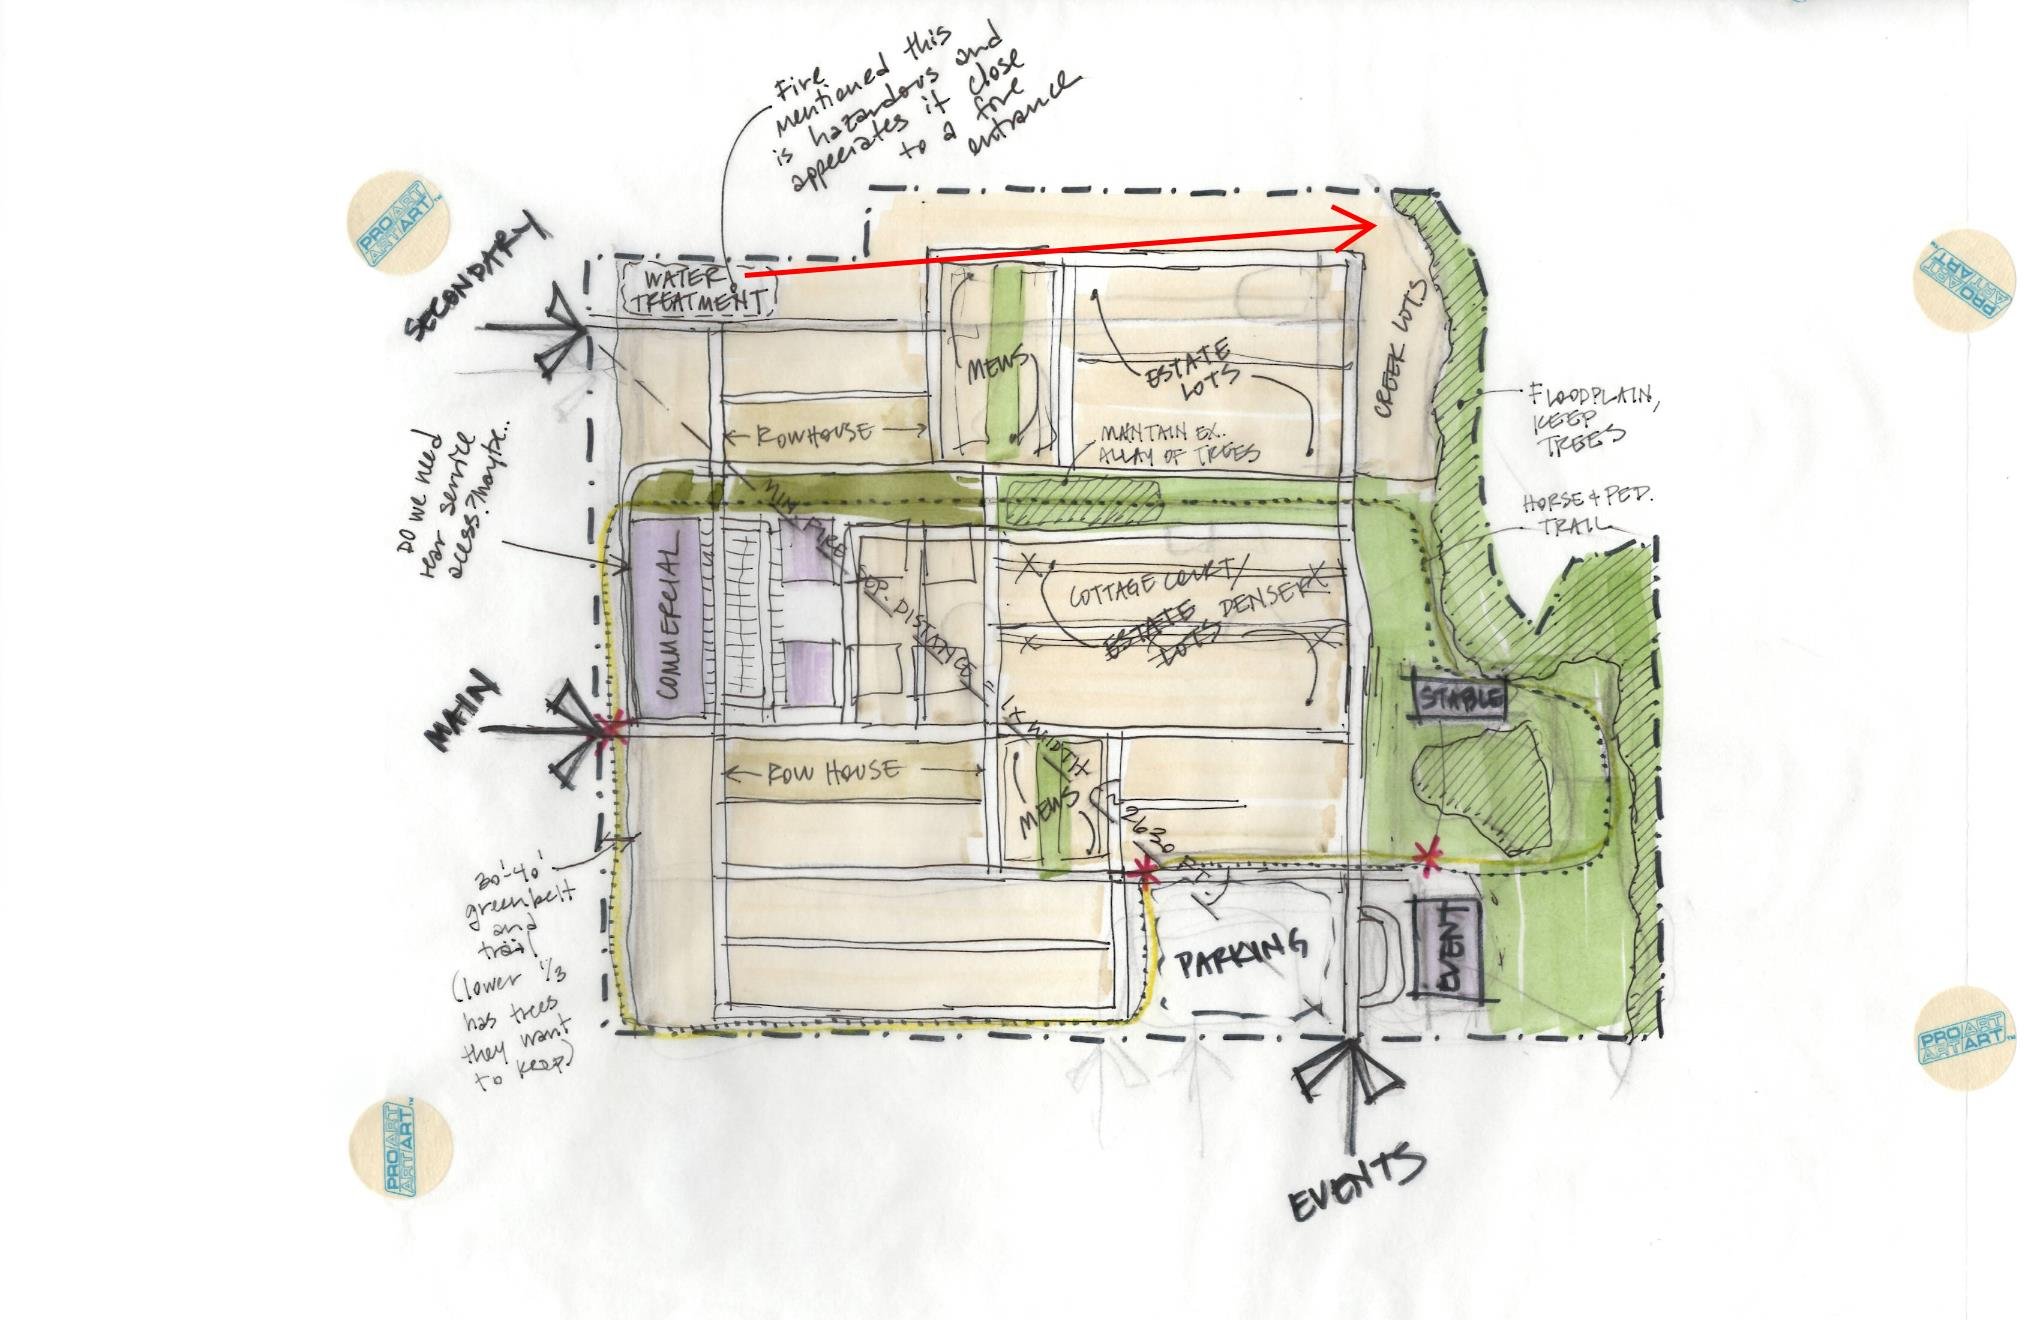 Fire
mentioned this
is hazardous and
appeciates it close
to a fire
entrance
PRO/ART
ART/ART™
SECONDARY
WATER
TREATMENT
MEWS
ESTATE
LOTS
CREEK LOTS
ROWHOUSE
MAINTAIN EX.
ALLAY OF TREES
FLOODPLAIN,
KEEP
TREES
HORSE & PED.
TRAIL
DO we need
rear service
access? Maybe..
COMMERCIAL
MIN. FIRE SEP. DISTANCE
COTTAGE COURT/
ESTATE DENSER
LOTS
STABLE
MAIN
ROW HOUSE
MEWS
1/2 WIDTH
~2630 FT
30'-40'
greenbelt
and
trail
(lower 1/3
has trees
they want
to keep)
PARKING
EVENT
EVENTS
PRO/ART
ART/ART™
PRO/ART
ART/ART™
PRO/ART
ART/ART™